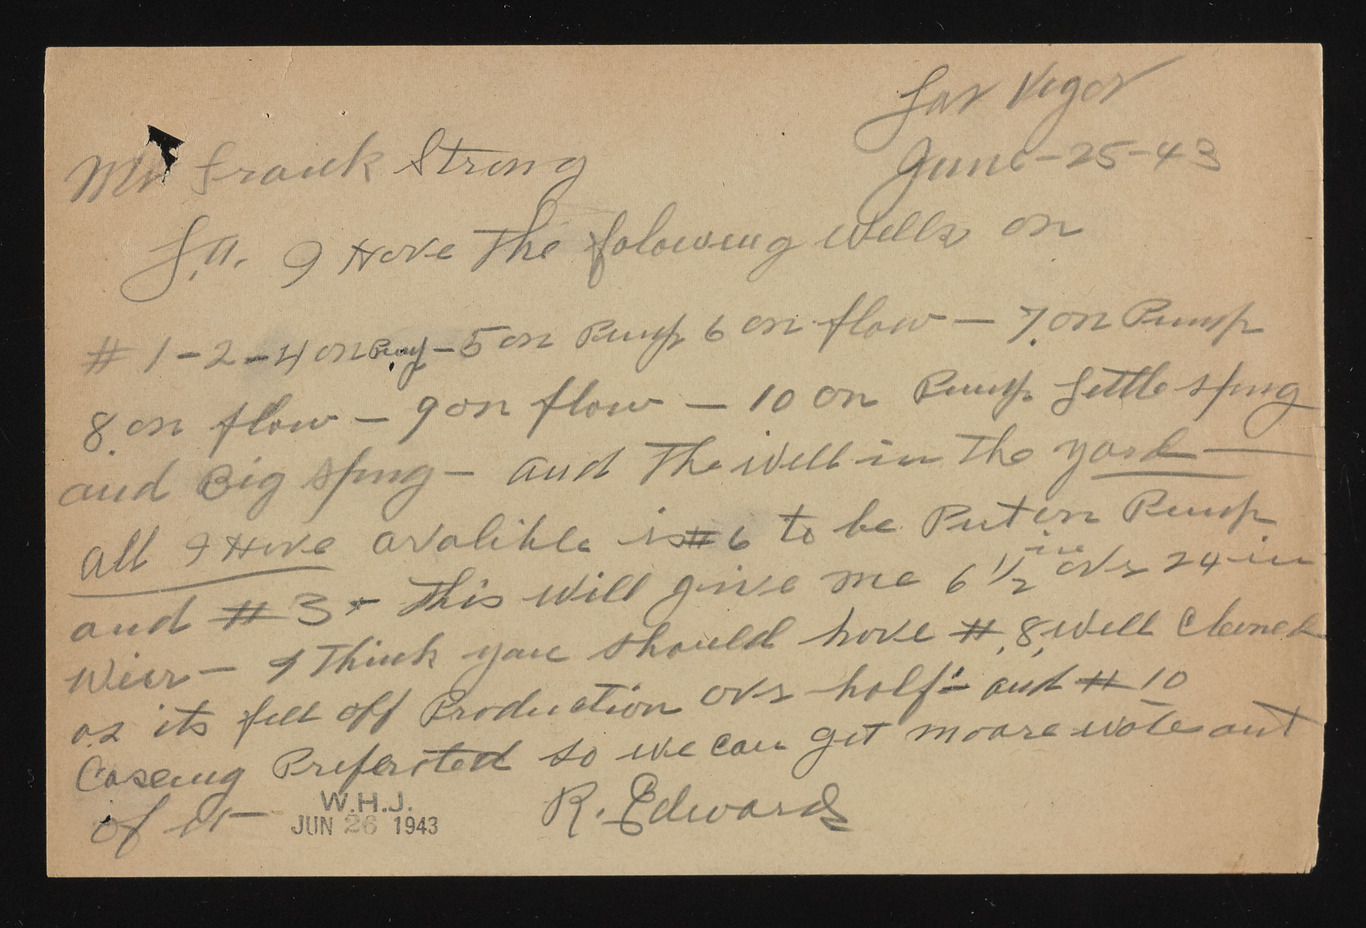 Las Vegas
June-25-43
Mr Frank Strong
I Have The folowing Wells on
# 1-2-4 on Pump-5 on Pump 6 on flow - 7 on Pump
8 on flow - 9 on flow - 10 on Pump Little Spring
and Big Spring - and The Well in The yard -
all I Have avalible is #6 to be Put on Pump
and #3 - This will give me 6 1/2 in over 24-in
Wier - I Think you should have #8 Well Cleaned
as its fell off Production over half - and #10
Caseing Preferated so we can get moare water out
of it -
R. Edwards
W.H.J.
JUN 26 1943